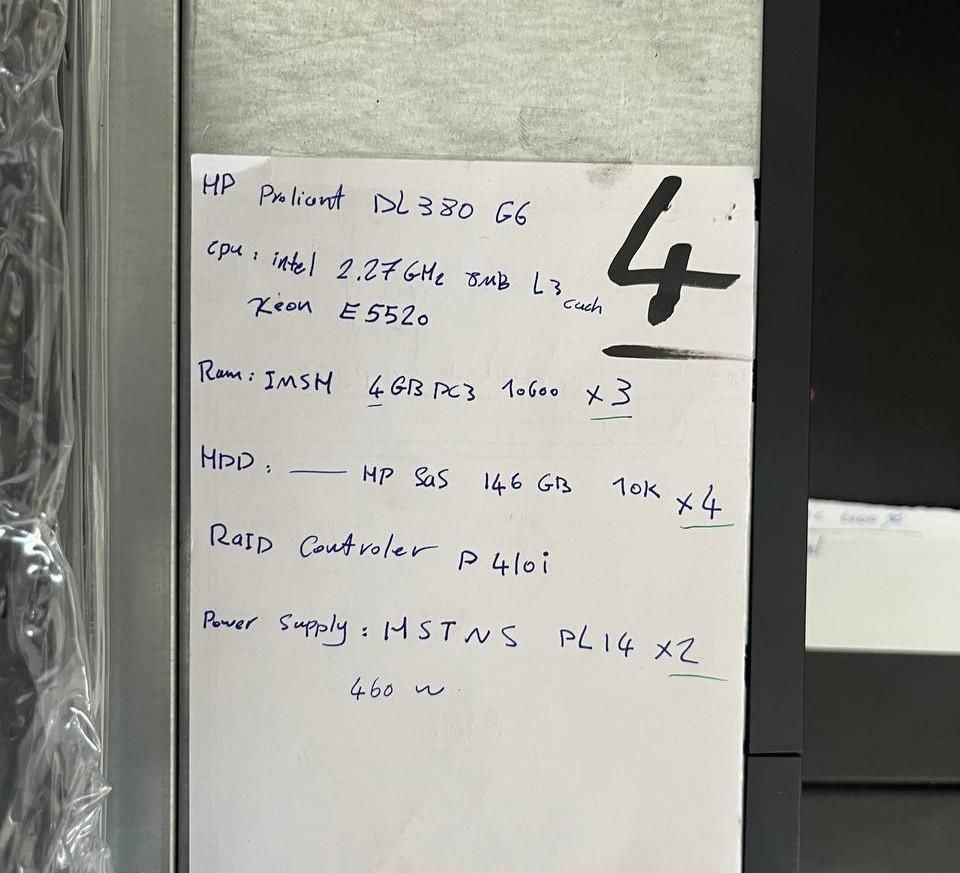 HP Proliant DL380 G6
4
cpu: intel 2.27GHz 8MB L3 cach
Xeon E5520
Ram: IMSH 4GB PC3 10600 x3
HDD: — HP SaS 146 GB 10K x4
RaID Controler P410i
Power Supply: HSTNS PL14 x2
460 w